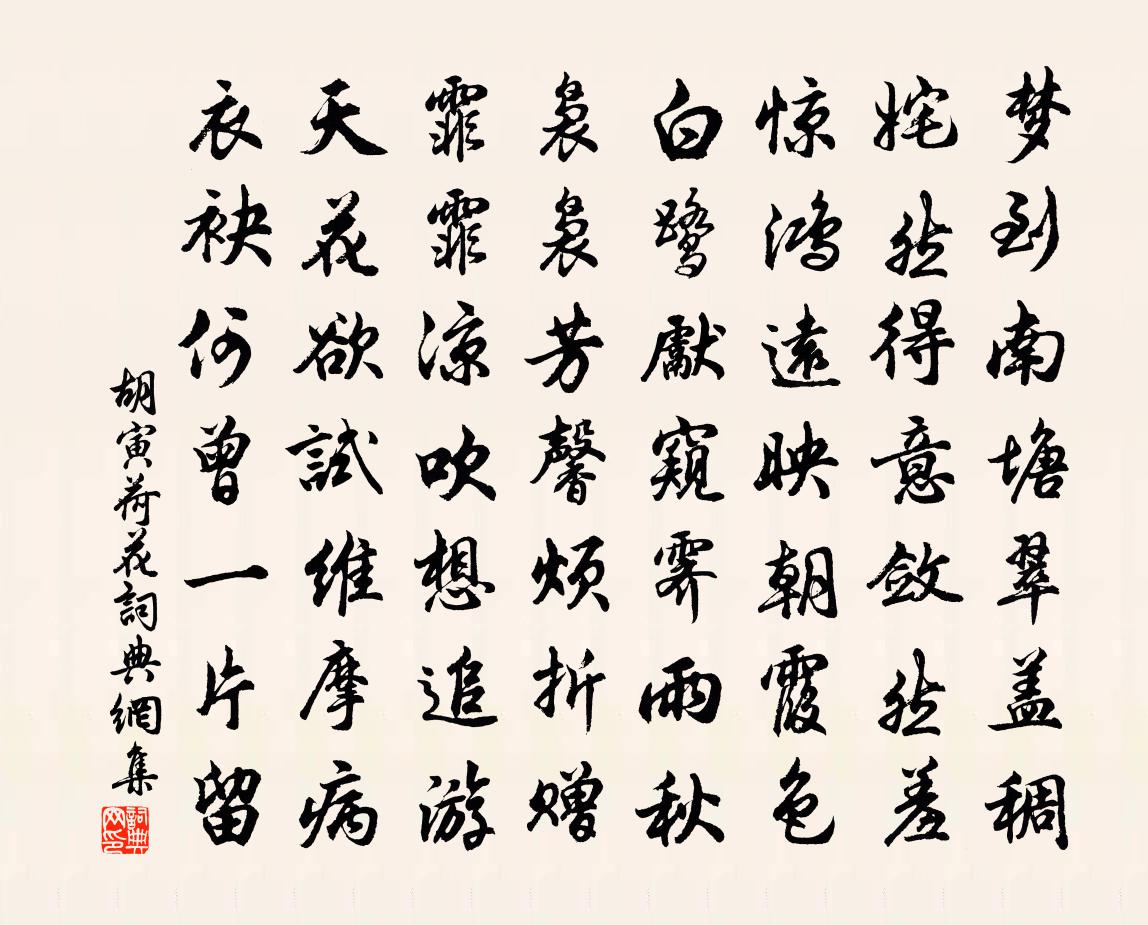 梦到南塘翠盖稠
姹然得意敛然羞
惊鸿遠映朝霞色
白鹭獻窺霽雨秋
袅袅芳馨烦折赠
霏霏凉吹想追游
天花欲試維摩病
衣袂何曾一片留
胡寅荷花詞典網集
詞典網印